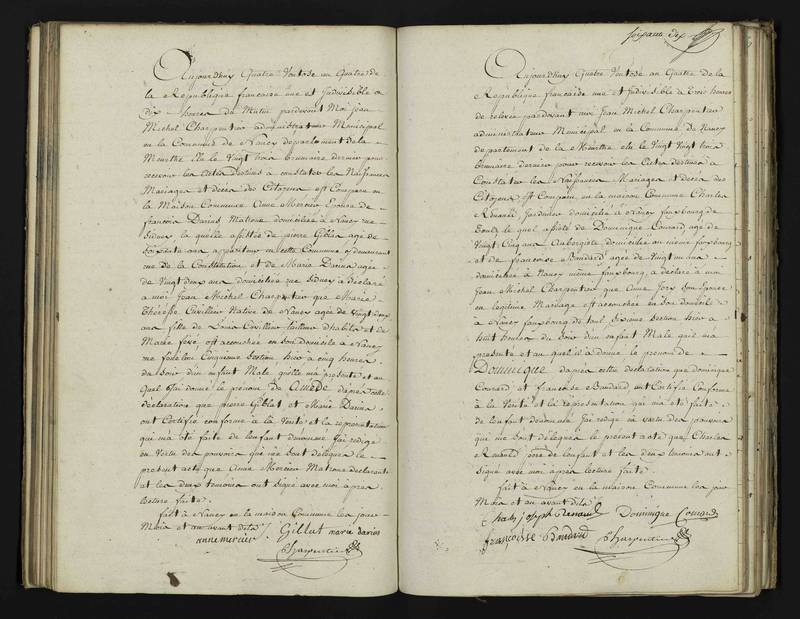 Aujourdhuy Quatre Ventose an Quatre de
la République francaise une et Indivisible a
Dix heures du Matin pardevant Moi jean
Michel Charpentier administrateur Municipal
en la Commune de Nancy département de la
Meurthe Elu le Vingt trois brumaire dernier pour
recevoir les actes Destinés a constater les Naissances
Mariages et décès des Citoyens est Comparu en
la Maison Commune Anne Mercier Epouse de
francois Darius Matrone domiciliée à Nancy rue
Sidney la quelle assistée de pierre Giblut agé de
soixante ans appariteur en cette Commune y demeurant
rue de la Constitution et de Marie Darius agée
de Vingt deux ans domiciliée rue Sidney a déclaré
a moi Jean Michel Charpentier que Marie
Thérèse Cuvillier Native de Nancy agée de Vingt deux
ans fille de Louis Cuvillier tailleur d'habits et de
Marie féré, est accouchée en son domicile a Nancy
rue Cinquieme Section hier a cinq heures
du soir d'un enfant Male qu'elle m'a présenté et au
quel j'ai donné le prénom de Amédé d'après cette
déclaration que pierre Giblut et Marie Darius
ont Certifié conforme à la Vérité et la représentation
qui m'a été faite de l'enfant denommé J'ai rédigé
en Vertu des pouvoirs qui me sont délégués le
présent acte que Anne Mercier Matrone déclarante
et les deux temoins ont signé avec moi après
lecture faite.
fait à Nancy en la maison Commune les jour
Mois et an avant dits
Gillut marie darius
anne mercier
Charpentier
soixante dix
Aujourdhuy Quatre Ventose an Quatre de la
République francaise une et Indivisible à trois heures
de relevée pardevant moi Jean Michel Charpentier
administrateur Municipal en la Commune de Nancy
département de la Meurthe elu le Vingt trois
brumaire dernier pour recevoir les Actes destinés a
Constater les Naissances Mariages et Décès des
Citoyens est Comparu en la maison Commune Charles
Renauld Jardinier domicilié à Nancy fauxbourg de
toul le quel assisté de Dominique Conrard agé de
Vingt Cinq ans Aubergiste domicilié au même fauxbourg
et de francoise Bondard agée de Vingt un ans
domiciliée à Nancy même fauxbourg a déclaré à moi
Jean Michel Charpentier que Anne son Epouse
en légitime Mariage est accouchée en son domicile
a Nancy fauxbourg de toul, Sixieme Section hier a
huit heures du Soir d'un enfant Male qu'il m'a
présenté et au quel il a donné le prenom de
Dominique d'après cette déclaration que dominique
Conrard et francoise Bondard ont Certifié Conforme
à la Vérité et la représentation qui m'a été faite
de l'enfant denommé J'ai rédigé en vertu des pouvoirs
qui me sont délégués le présent acte que Charles
Renauld pere de l'enfant et les deux temoins ont
signé avec moi après lecture faite.
fait à Nancy en la maison Commune les jour
Mois et an avant dits
Charles joseph Renauld Dominique Conrard
françoisse Bondard Charpentier